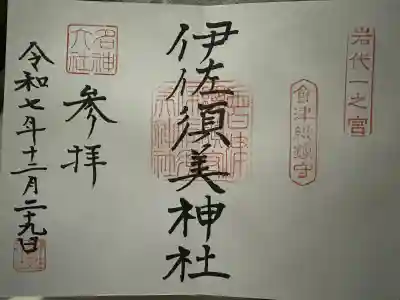 岩代一之宮
會津総鎮守
伊佐須美神社
名神大社
参拝
令和七年十二月二十九日